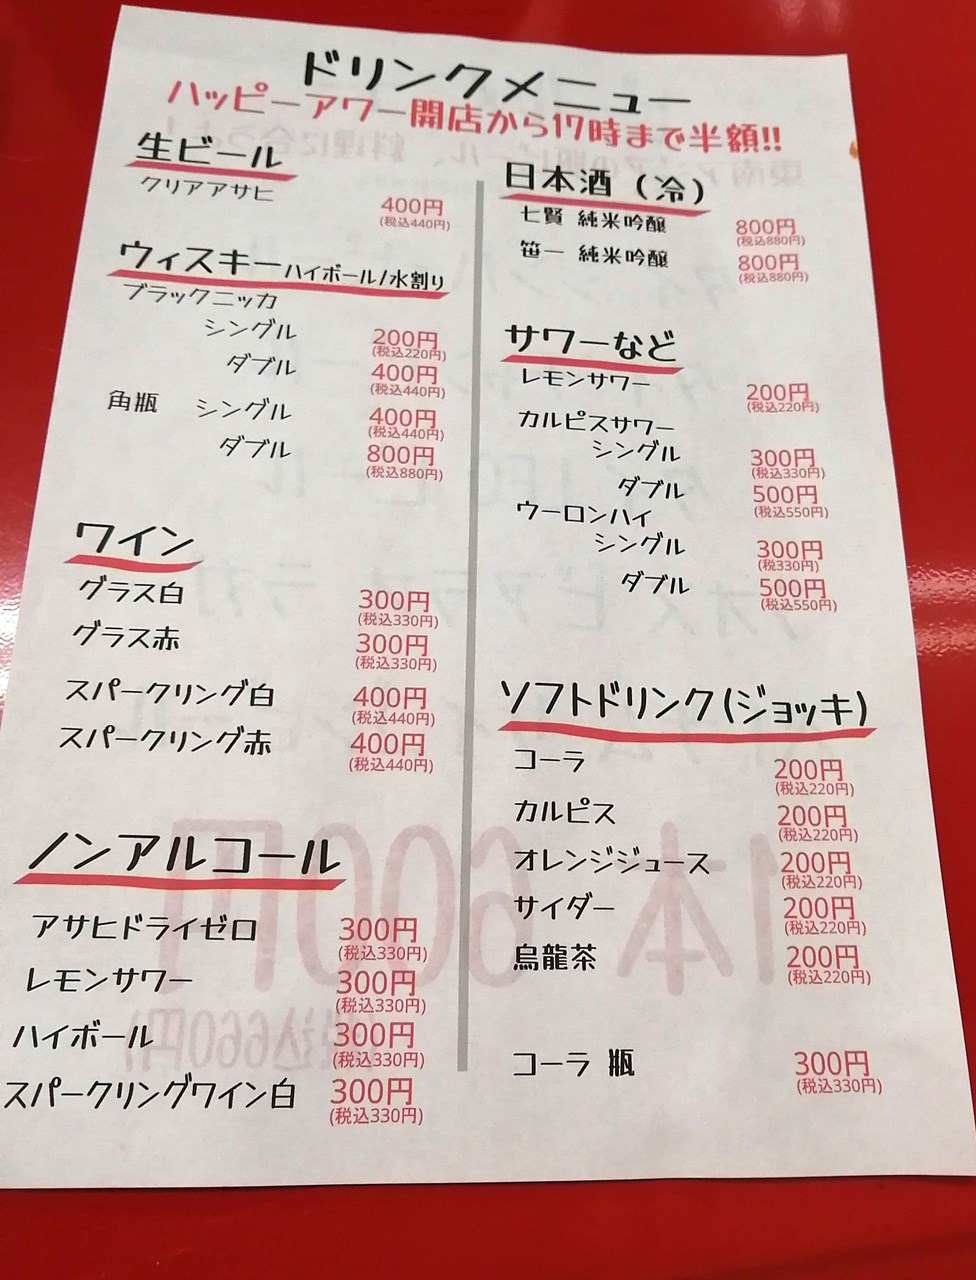 ドリンクメニュー
ハッピーアワー開店から17時まで半額!!
生ビール
クリアアサヒ
400円
(税込440円)
ウィスキーハイボール/水割り
ブラックニッカ
シングル
200円
(税込220円)
ダブル
400円
(税込440円)
角瓶 シングル
400円
(税込440円)
ダブル
800円
(税込880円)
ワイン
グラス白
300円
(税込330円)
グラス赤
300円
(税込330円)
スパークリング白
400円
(税込440円)
スパークリング赤
400円
(税込440円)
ノンアルコール
アサヒドライゼロ
300円
(税込330円)
レモンサワー
300円
(税込330円)
ハイボール
300円
(税込330円)
スパークリングワイン白
300円
(税込330円)
日本酒(冷)
七賢 純米吟醸
800円
(税込880円)
笹一 純米吟醸
800円
(税込880円)
サワーなど
レモンサワー
200円
(税込220円)
カルピスサワー
シングル
300円
(税込330円)
ダブル
500円
(税込550円)
ウーロンハイ
シングル
300円
(税330円)
ダブル
500円
(税込550円)
ソフトドリンク(ジョッキ)
コーラ
200円
(税込220円)
カルピス
200円
(税込220円)
オレンジジュース
200円
(税込220円)
サイダー
200円
(税込220円)
烏龍茶
200円
(税込220円)
コーラ 瓶
300円
(税込330円)
1本600円
(税込660円)